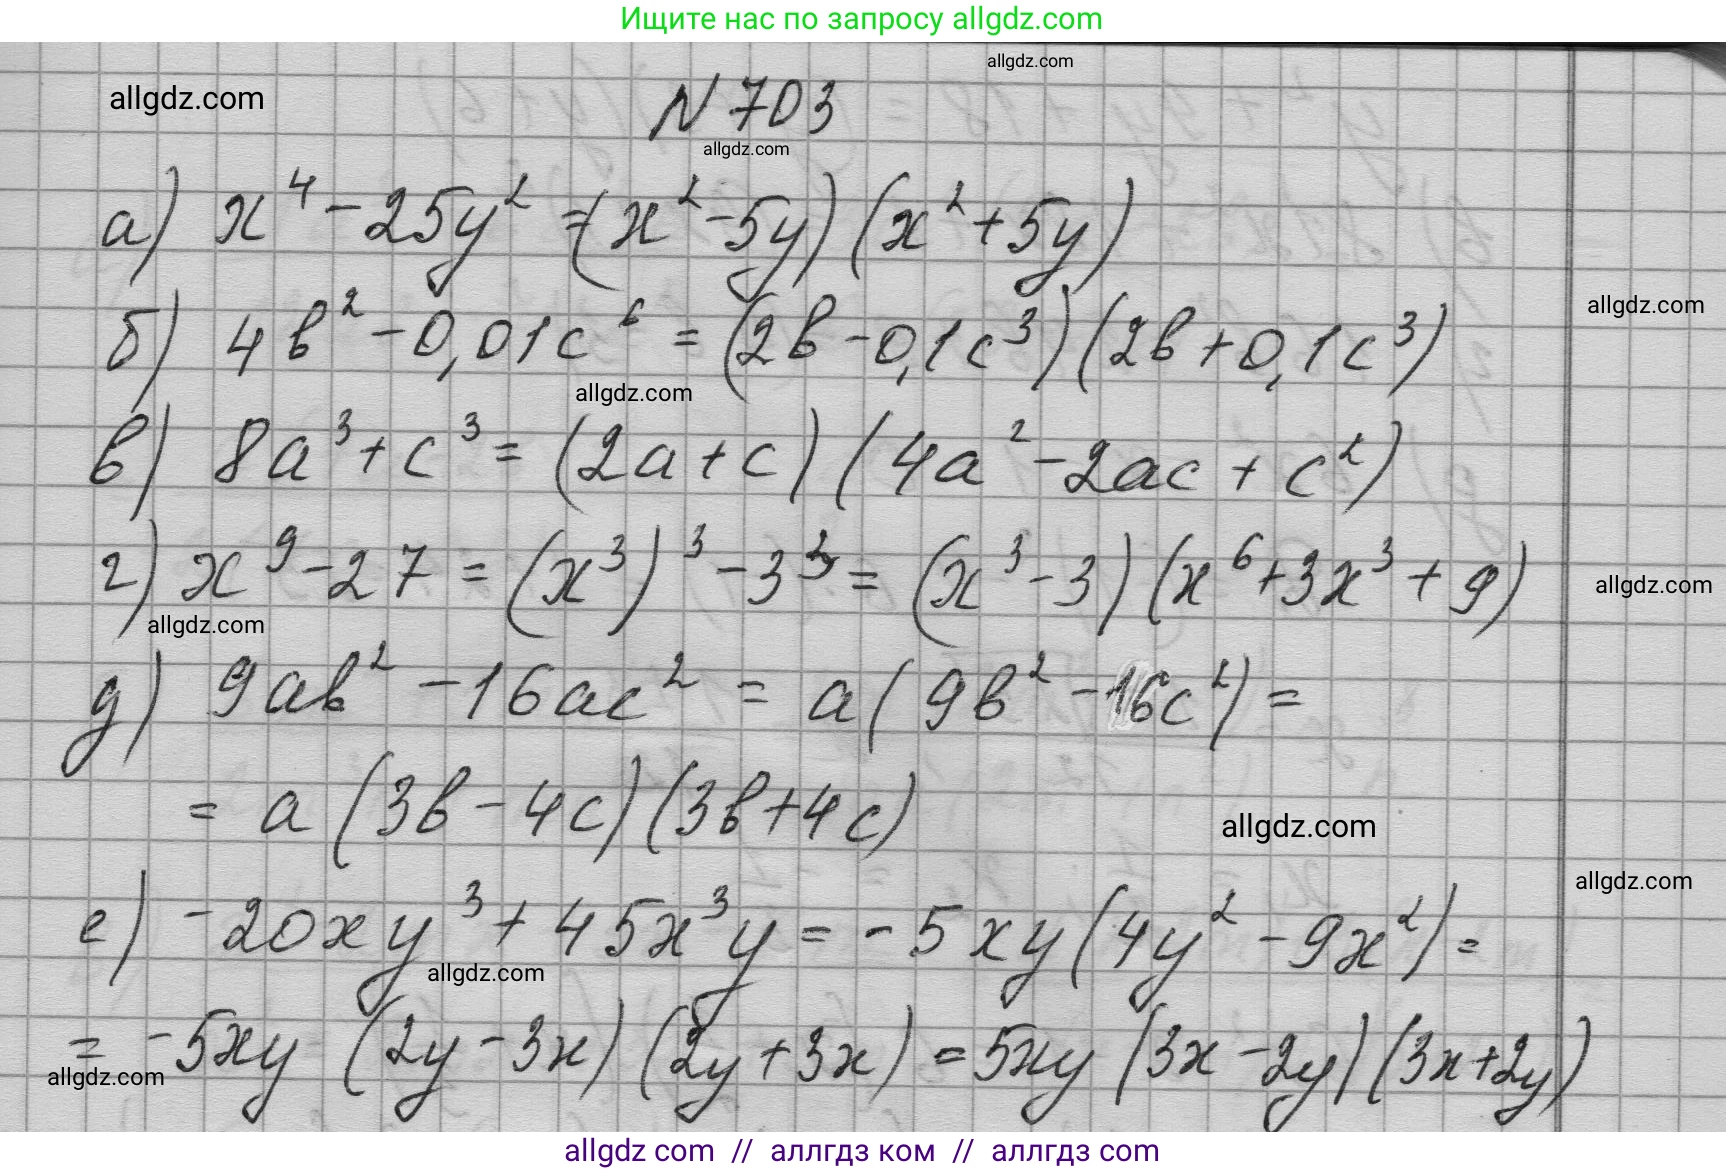 Ищите нас по запросу allgdz.com
allgdz.com
allgdz.com
N 703
allgdz.com
а) x⁴ - 25y² = (x² - 5y) (x² + 5y)
allgdz.com
б) 4в² - 0,01c⁶ = (2в - 0,1c³) (2в + 0,1c³)
allgdz.com
в) 8a³ + c³ = (2a + c) (4a² - 2ac + c²)
г) x⁹ - 27 = (x³)³ - 3³ = (x³ - 3) (x⁶ + 3x³ + 9)
allgdz.com
allgdz.com
д) 9aв² - 16ac² = a (9в² - 16c²) =
= a (3в - 4c) (3в + 4c)
allgdz.com
allgdz.com
е) -20xy³ + 45x³y = -5xy (4y² - 9x²) =
allgdz.com
= -5xy (2y - 3x) (2y + 3x) = 5xy (3x - 2y) (3x + 2y)
allgdz.com
allgdz com // аллгдз ком // аллгдз com